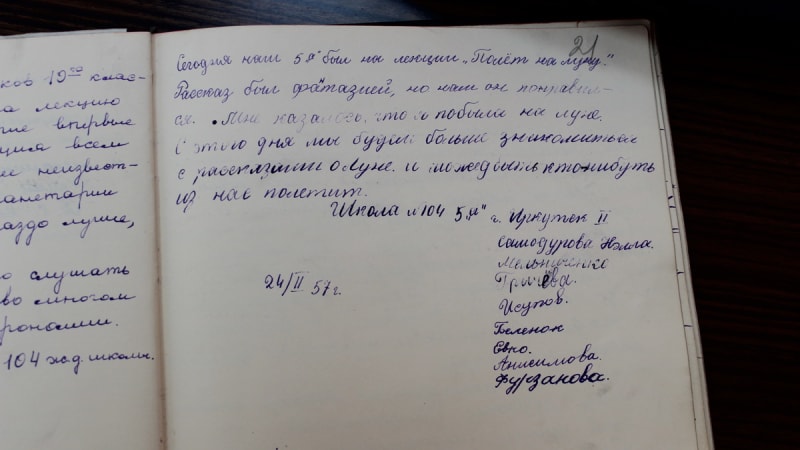 21
ков 19го клас-
а лекцию
ие впервые
всем
неизвест-
ланетарии
раздо лучше,
о слушать
во многом
рономии.
104 жд. школы.
Сегодня наш 5 был на лекции „Полёт на луну".
Рассказ был фатазией, но нам он понравил-
ся. Мне казалось, что я побыла на луне.
С этого дня мы будем больше знакомиться
с рассказами о Луне. и может быть ктонибуть
из нас полетит.
Школа №104 5 г. Иркутск II
Самодурова Нэлла.
Мельниченко
24/II 57 г.
Исупов.
Беленок
Евко.
Анисимова.
Фурзанова.